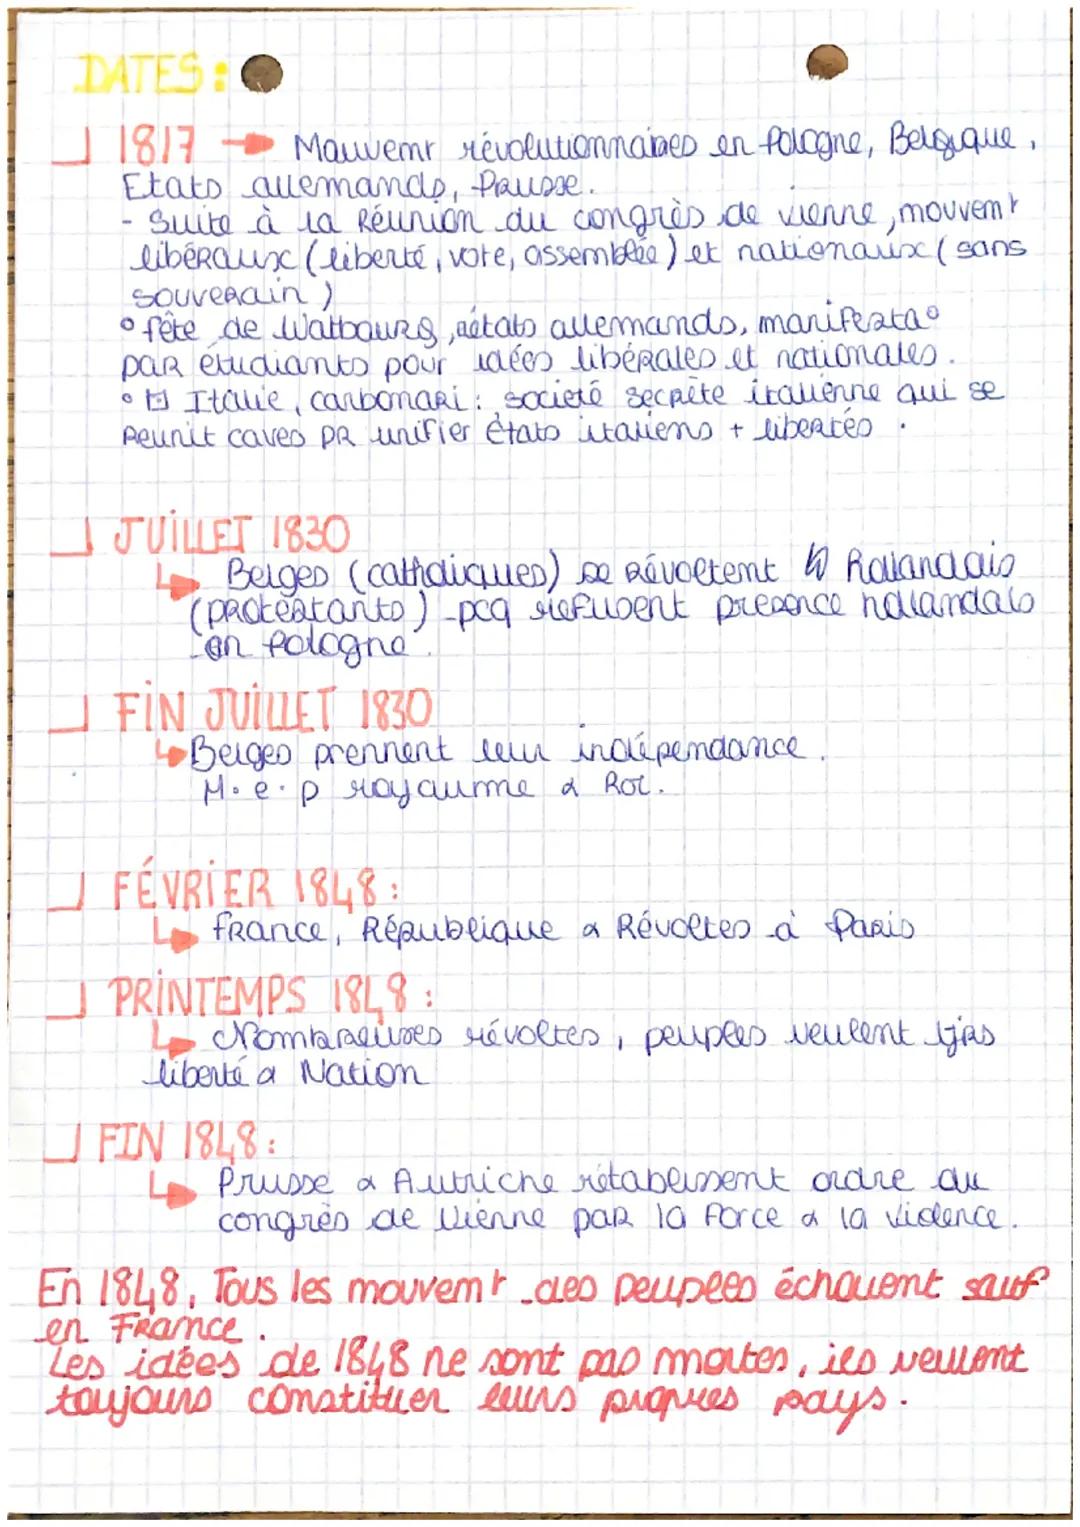 DATES :
1817 → Mouvemt révolutionnaires en Pologne, Belgique,
Etats allemands, Prusse.
- Suite à la Réunion du congrès de vienne, mouvemt
libéraux (liberté, vote, assemblée) et nationaux (sans
souverain)
° fête de Watbourg, états allemands, manifesta°
par étudiants pour idées libérales et nationales.
° Italie, carbonari : société secrète italienne qui se
Réunit caves pr unifier états italiens + libertés.
JUILLET 1830
↳ Belges (catholiques) se Révoltent Holandais
(protestants) pcq refusent presence holandais
en Pologne.
FIN JUILLET 1830
↳ Belges prennent leur indépendance.
M.e.p royaume & Roi.
FÉVRIER 1848 :
↳ France, République & Révoltes à Paris
PRINTEMPS 1848 :
↳ Nombreuses révoltes, peuples veulent tjrs
liberté & Nation
FIN 1848 :
↳ Prusse & Autriche rétablissent ordre du
congrès de Vienne par la force & la violence.
En 1848, Tous les mouvemt des peuples échouent sauf
en France.
Les idées de 1848 ne sont pas mortes, ils veulent
toujours constituer leurs propres pays.